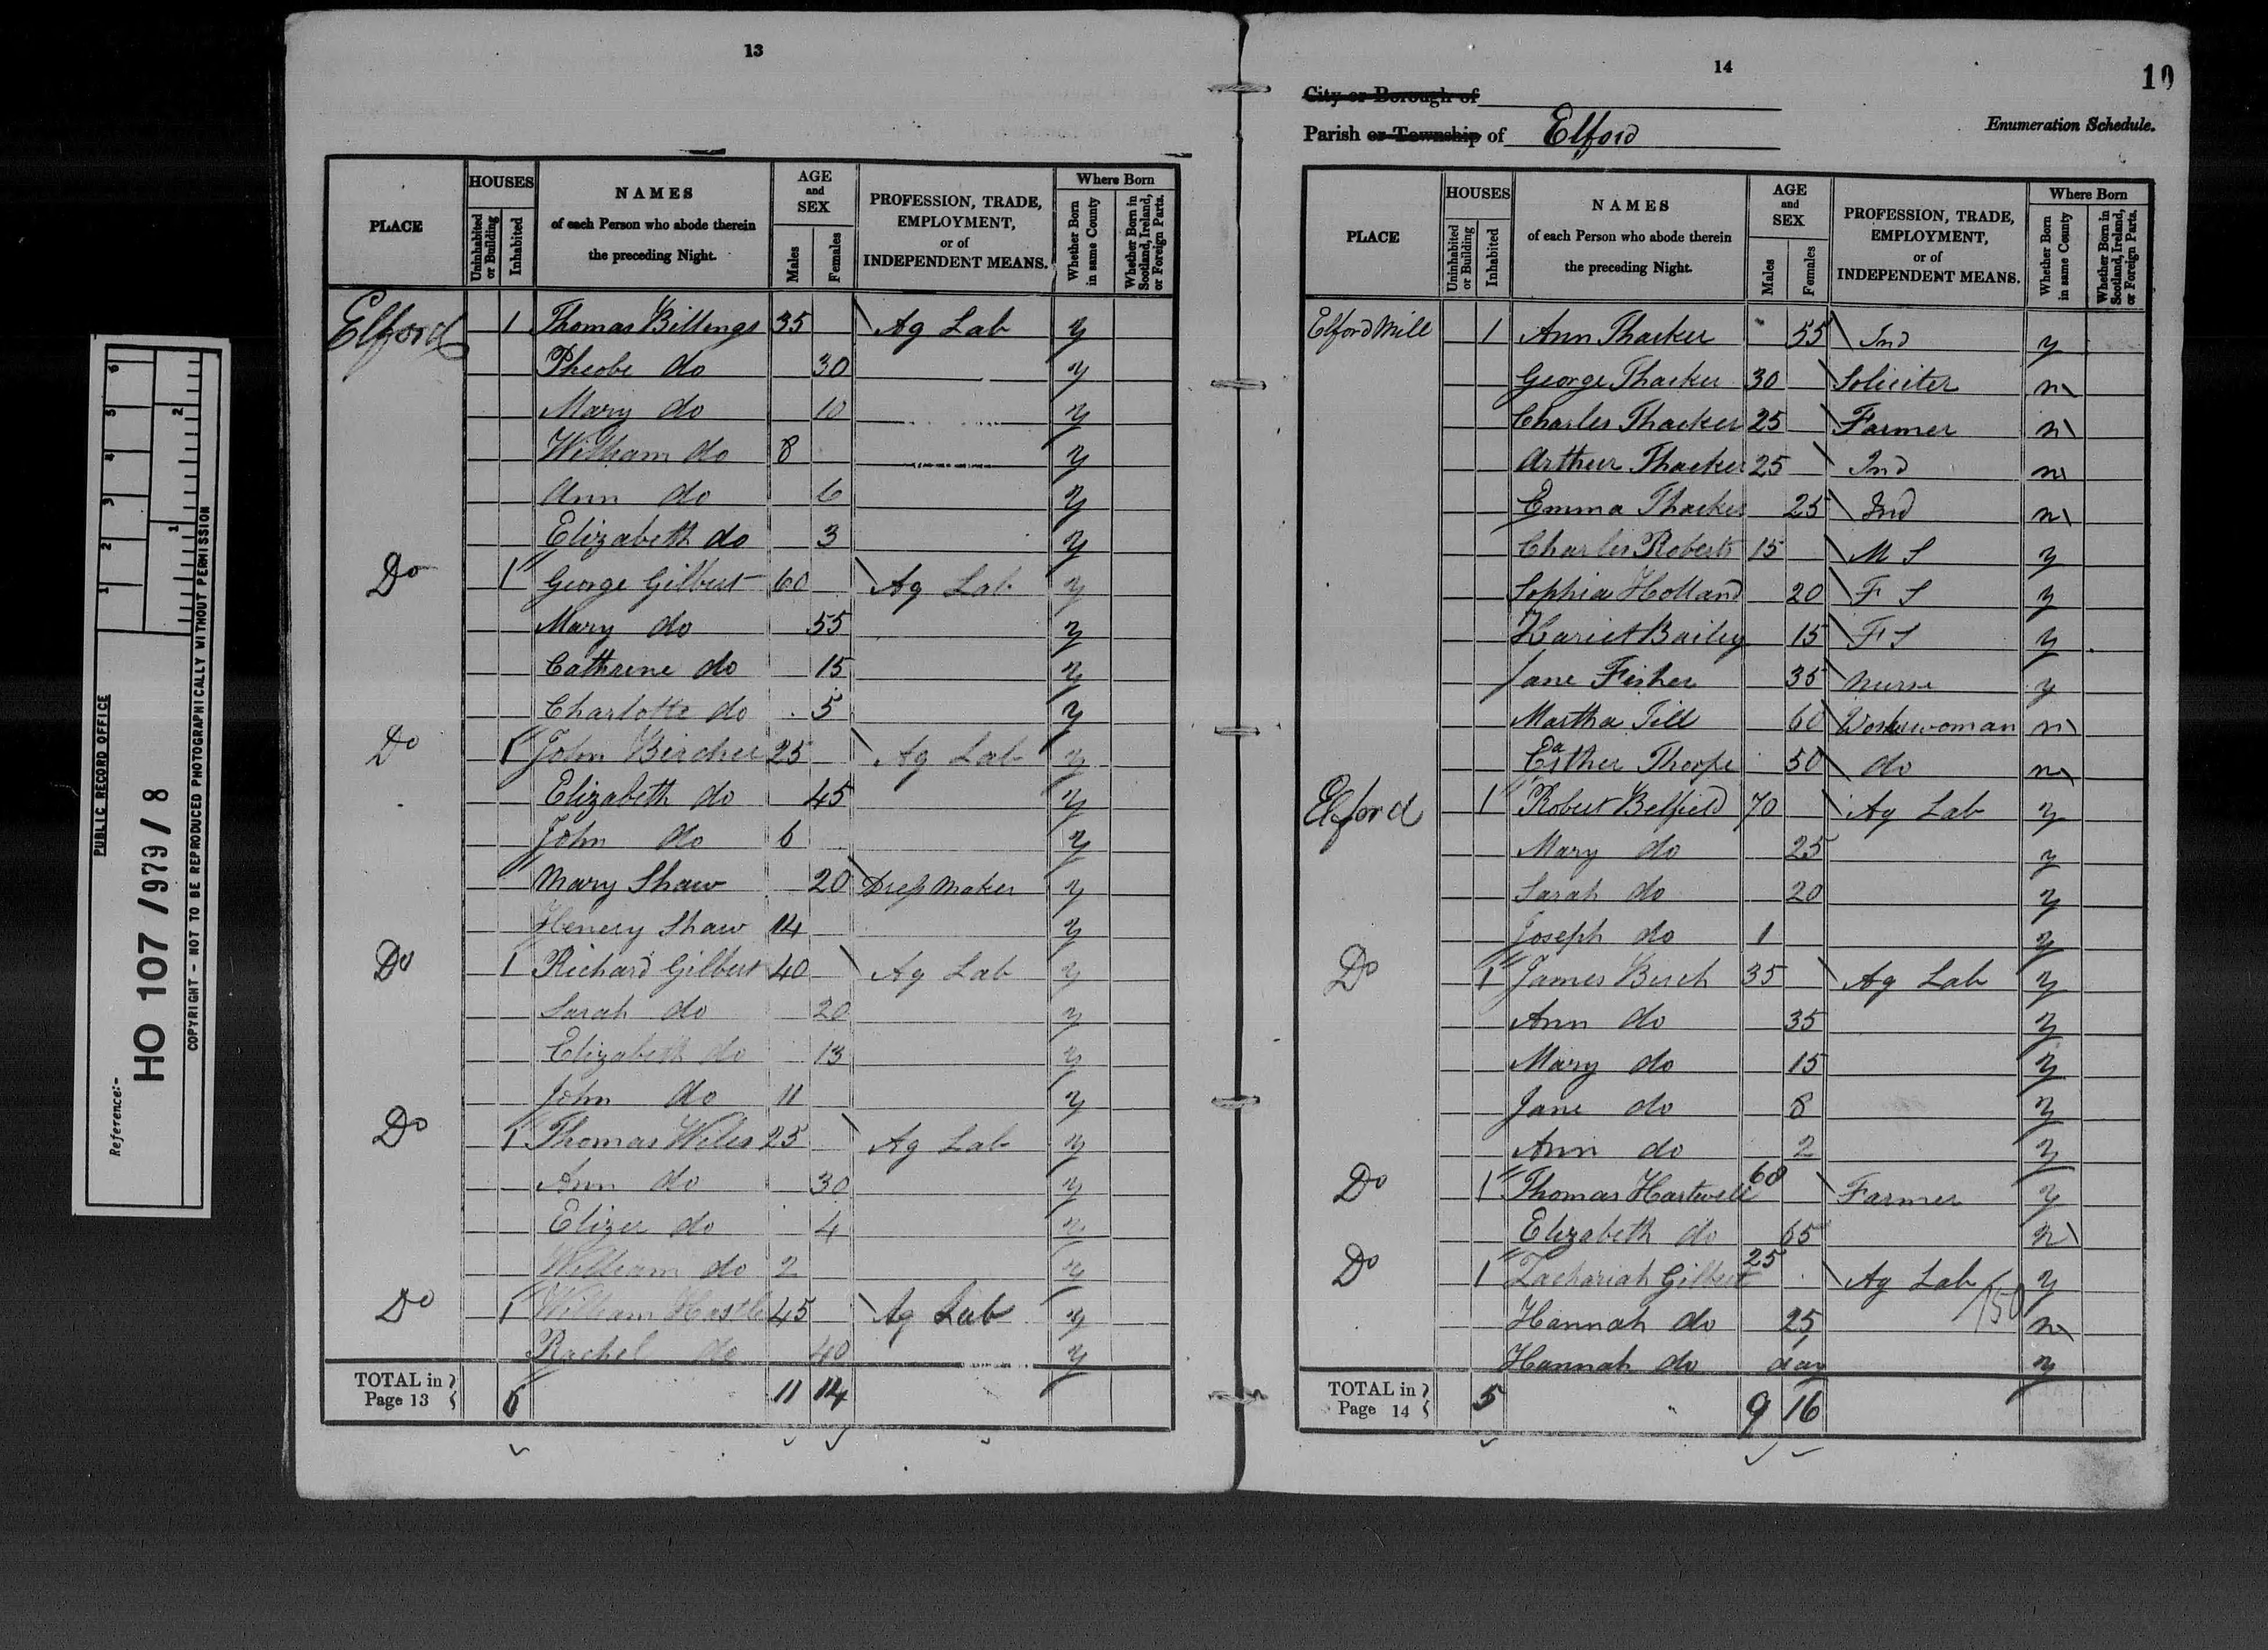 13
PLACE HOUSES Uninhabited or Building Inhabited NAMES of each Person who abode therein the preceding Night. AGE and SEX Males Females PROFESSION, TRADE, EMPLOYMENT, or of INDEPENDENT MEANS. Where Born Whether Born in same County Whether Born in Scotland, Ireland, or Foreign Parts.
Elford 1 Thomas Billings 35 Ag Lab y
Pheobe do 30 y
Mary do 10 y
William do 8 y
Ann do 6 y
Elizabeth do 3 y
Do 1 George Gilbert 60 Ag Lab y
Mary do 55 y
Catharine do 15 y
Charlotte do 5 y
Do 1 John Bircher 25 Ag Lab y
Elizabeth do 45 y
John do 6 y
Mary Shaw 20 Dress Maker y
Henery Shaw 14 y
Do 1 Richard Gilbert 40 Ag Lab y
Sarah do 20 y
Elizabeth do 13 y
John do 11 y
Do 1 Thomas Wiles 25 Ag Lab y
Ann do 30 y
Elizer do 4 y
William do 2 y
Do 1 William 45 Ag Lab y
Rachel do 40 y
TOTAL in Page 13 6 11 14
14
10
City or Borough of
Parish or Township of Elford
Enumeration Schedule.
PLACE HOUSES Uninhabited or Building Inhabited NAMES of each Person who abode therein the preceding Night. AGE and SEX Males Females PROFESSION, TRADE, EMPLOYMENT, or of INDEPENDENT MEANS. Where Born Whether Born in same County Whether Born in Scotland, Ireland, or Foreign Parts.
Elford Mill 1 Ann Thacker 55 Ind y
George Thacker 30 Soliciter n
Charles Thacker 25 Farmer n
Arthur Thacker 25 Ind n
Emma Thacker 25 Ind n
Charles Roberts 15 M S y
Sophia Holland 20 F S y
Hariet Bailey 15 F S y
Jane Fisher 35 Nurse y
Martha Till 60 n
Esther Thorpe 50 do n
Elford 1 Robert Belfield 70 Ag Lab y
Mary do 25 y
Sarah do 20 y
Joseph do 1 y
Do 1 James Birch 35 Ag Lab y
Ann do 35 y
Mary do 15 y
Jane do 8 y
Ann do 2 y
Do 1 Thomas Hartwell 60 Farmer y
Elizabeth do 65 n
Do 1 Zachariah Gilbert 25 Ag Lab y
150
Hannah do 25 n
Hannah do 1 day y
TOTAL in Page 14 5 9 16
PUBLIC RECORD OFFICE
Reference:-
HO 107 / 979 / 8
COPYRIGHT - NOT TO BE REPRODUCED PHOTOGRAPHICALLY WITHOUT PERMISSION
1 2 3 4 5 6
1 2